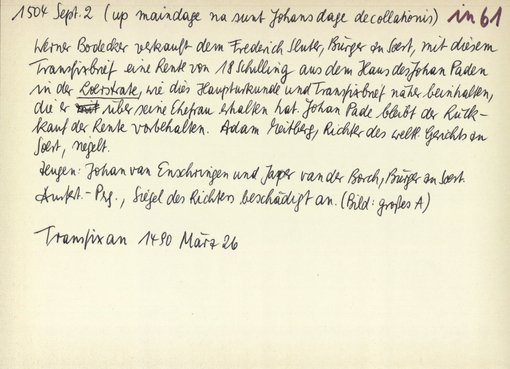 1504 Sept. 2 (up maindage na sunt Johans dage decollationis) in 61
Werner Bodecker verkauft dem Frederich Sluter, Bürger zu Soest, mit diesem
Transfixbrief eine Rente von 18 Schilling aus dem Haus des Johan Paden
in der Loerstrate, wie dies Haupturkunde und Transfixbrief näher beinhalten,
die er über seine Ehefrau erhalten hat. Johan Pade bleibt der Rück-
kauf der Rente vorbehalten. Adam Greitberg, Richter des weltl. Gerichts zu
Soest, siegelt.
Zeugen: Johan van Enschringen und Jasper van der Borch, Bürger zu Soest.
Ausfert.-Prg., Siegel des Richters beschädigt an. (Bild: großes A)
Transfix an 1490 März 26